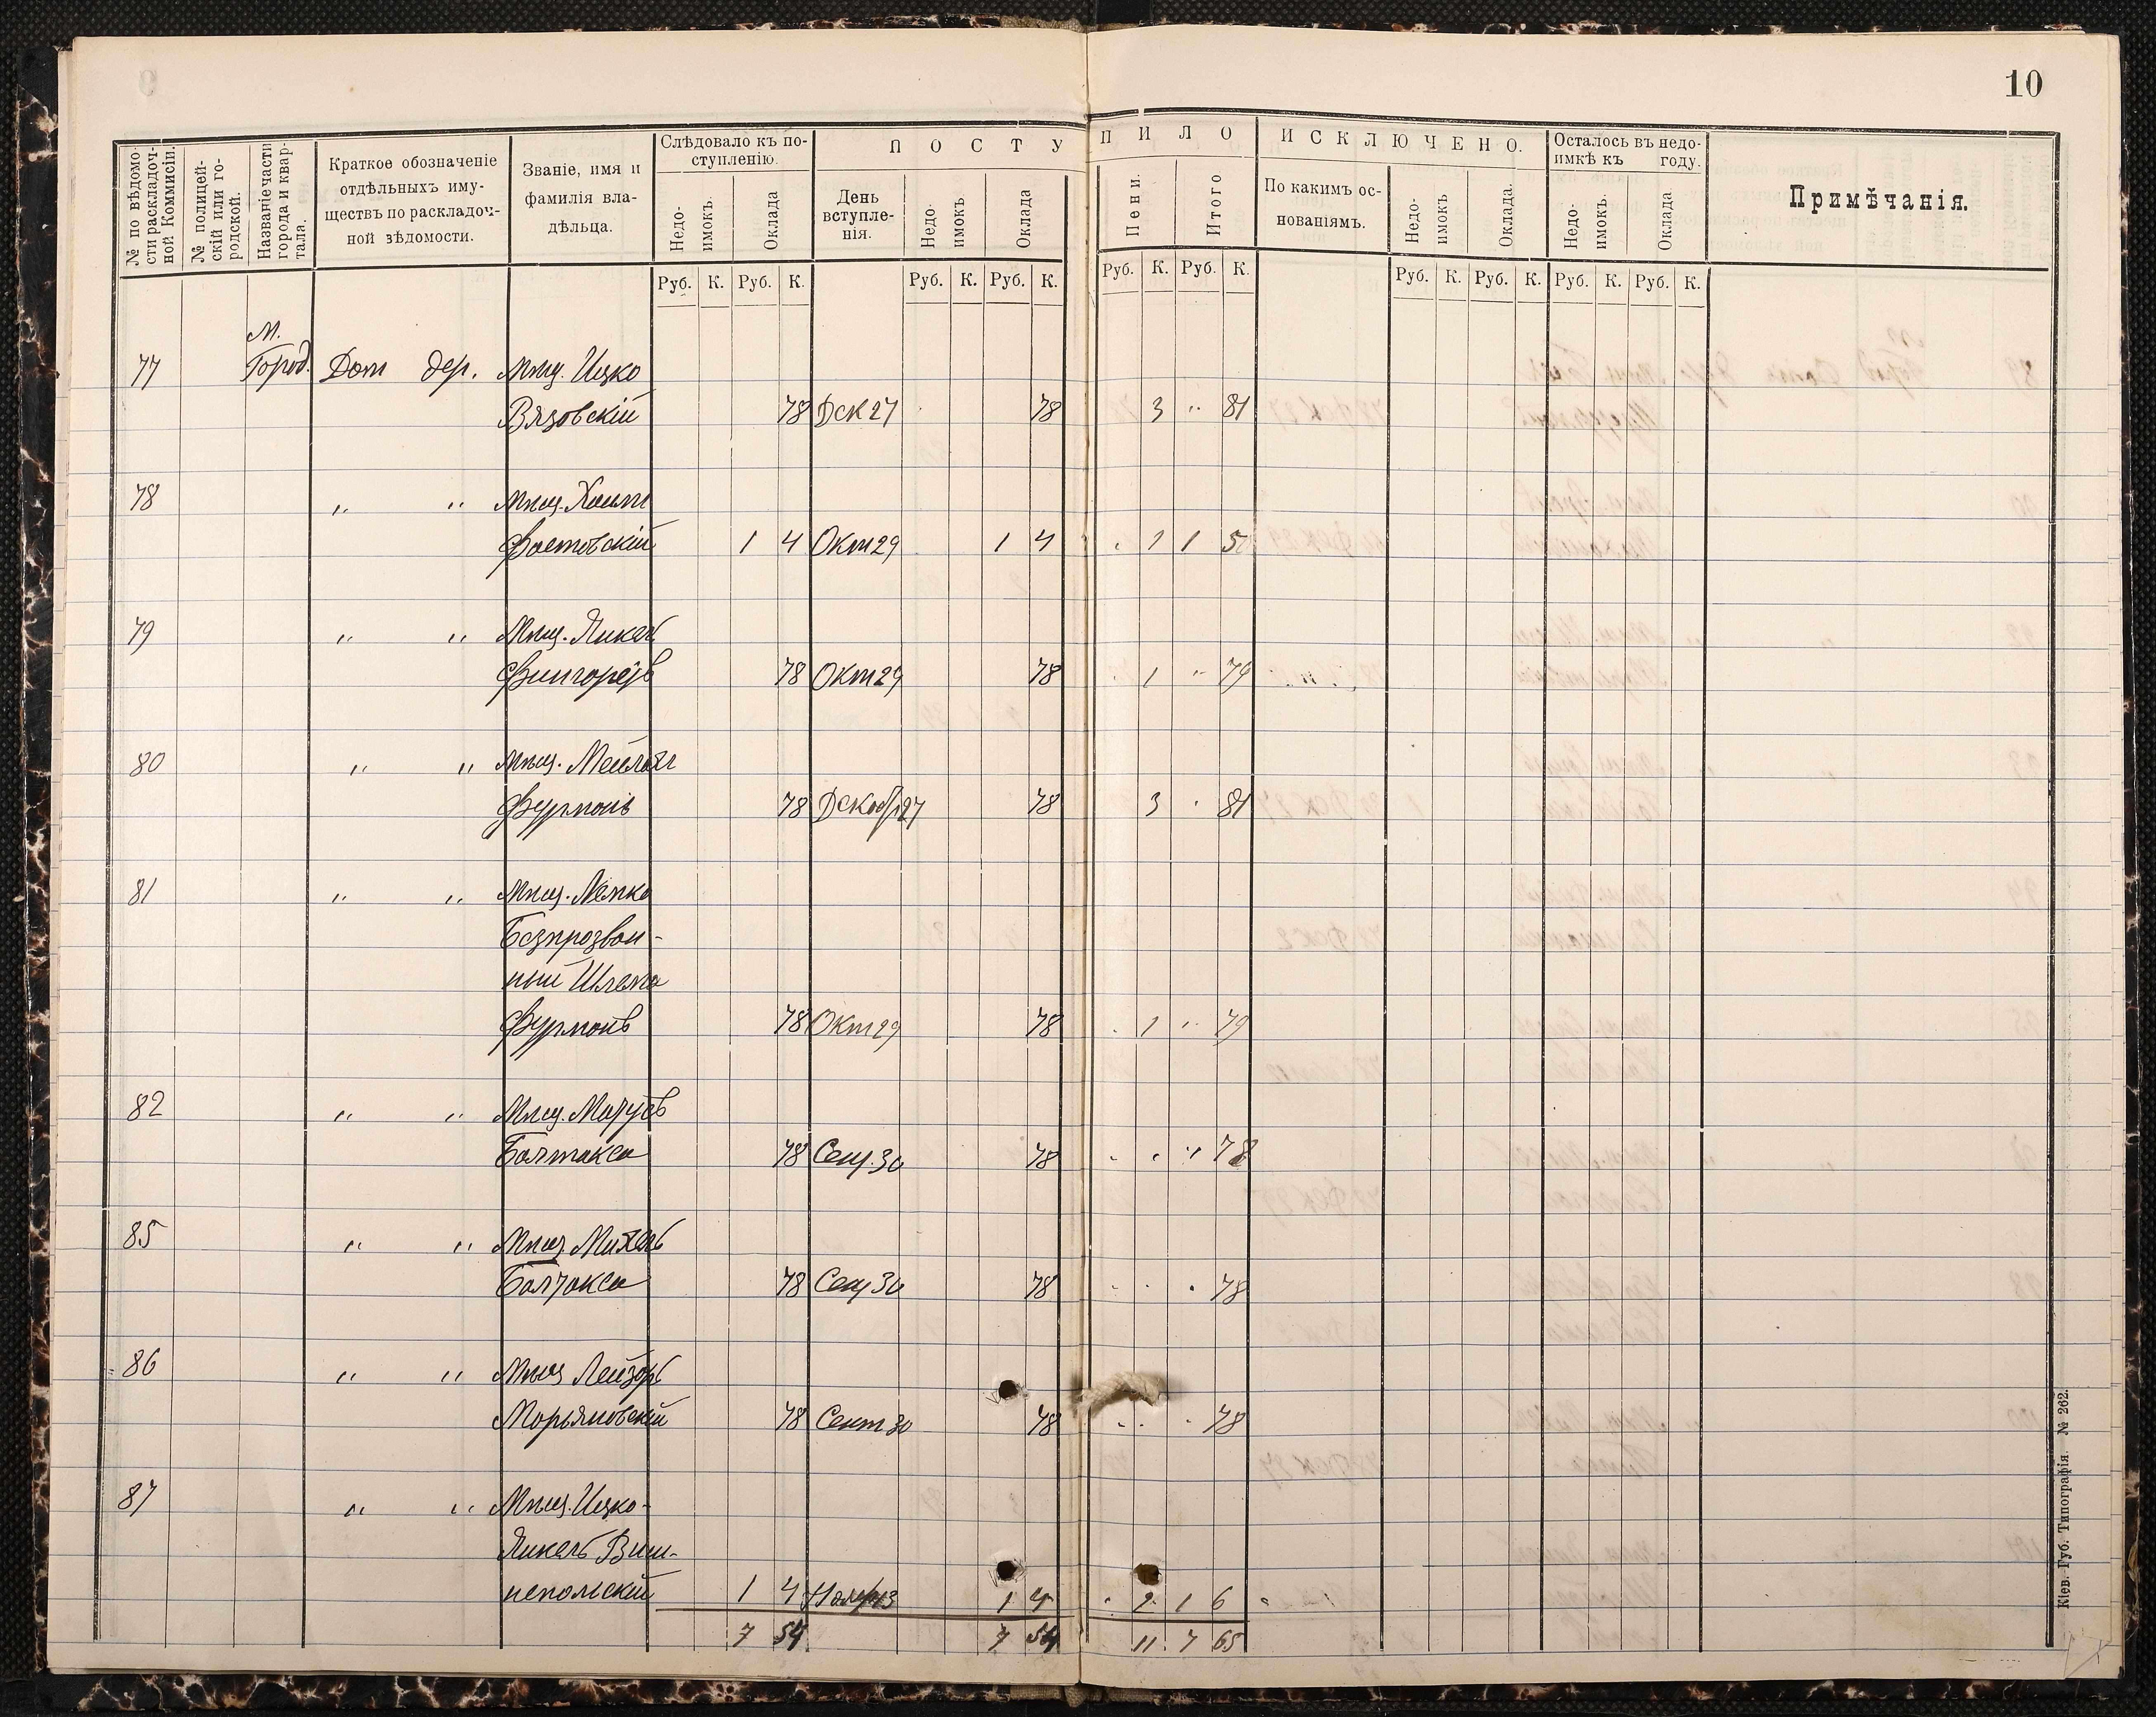 10
№ по вѣдомости раскладочной Коммисіи.
№ полицейскій или городской.
Названіе части города и квартала.
Краткое обозначеніе отдѣльныхъ имуществъ по раскладочной вѣдомости.
Званіе, имя и фамилія владѣльца.
Слѣдовало къ поступленію.
Недоимокъ.
Оклада
ПОСТУПИЛО
День вступленія.
Недоимокъ
Оклада
Пени.
Итого
ИСКЛЮЧЕНО.
По какимъ основаніямъ.
Недоимокъ
Оклада.
Осталось въ недоимкѣ къ году.
Недоимокъ.
Оклада
Примѣчанія.
Руб. К. Руб. К. Руб. К. Руб. К. Руб. К. Руб. К. Руб. К. Руб. К. Руб. К. Руб. К.
М.
77 Город. Дом дер. Мѣщ. Ицко
Вязовскій 78 Дек 27 78 3 " 81
78 " " Мѣщ. Хаим
Фастовскій 1 4 Окт 29 1 4 1 1 5
79 " " Мѣщ. Янкель
78 Окт 29 78 1 " 79
80 " " Мѣщ.
Фурмонъ 78 Декабр 27 78 3 81
81 " " Мѣщ.
Безпрозван-
ный Шлема
Фурмонъ 78 Окт 29 78 1 " 79
82 " " Мѣщ.
Балтакса 78 Сен. 30 78 " 78
85 " " Мѣщ Михель
Балтакса 78 Сен 30 78 78
86 " " Мѣщ Лейзоръ
Морьяновскій 78 Сент 30 78 78
87 " " Мѣщ. Ицко-
Янкель Виш-
непольскій 1 4 Нояб 13 1 4 2 1 6
7 54 7 54 11 7 65
Кіев. Губ. Типографія. № 262.